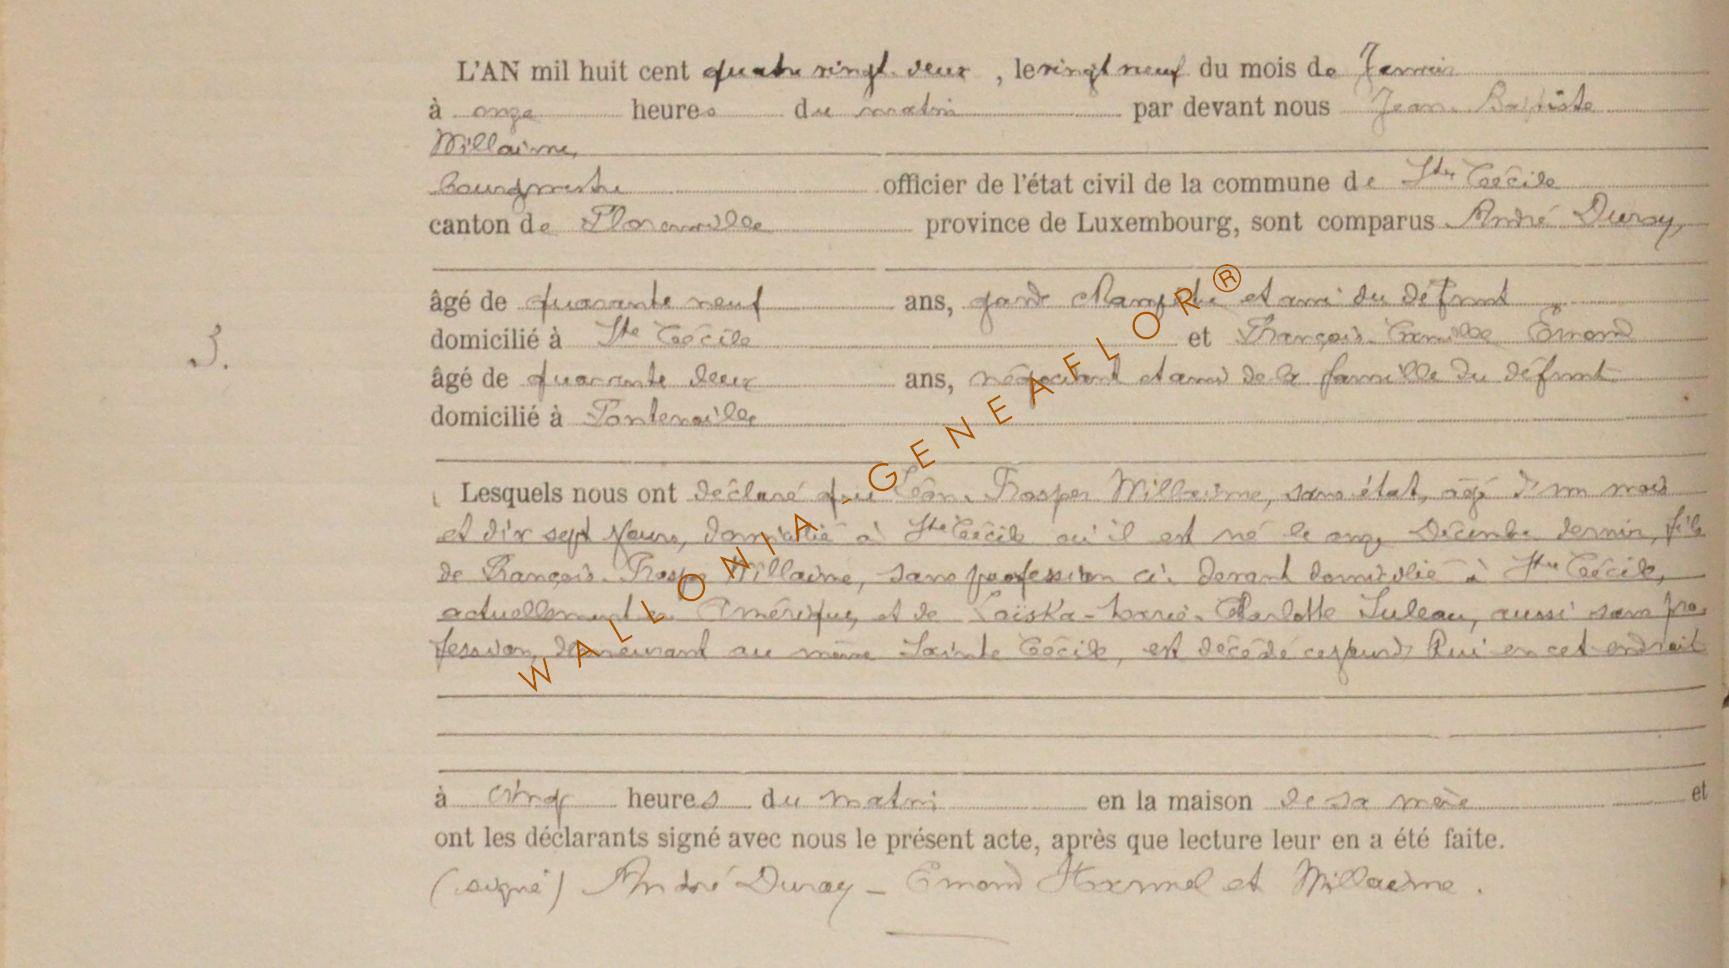 L'AN mil huit cent quatre vingt deux , le vingt neuf du mois de Janvier
à onze heures du matin par devant nous Jean-Baptiste
Millaime,
bourgmestre officier de l'état civil de la commune de Ste Cécile
canton de Florenville province de Luxembourg, sont comparus André Duray,
âgé de quarante neuf ans, garde champêtre et ami du défunt
domicilié à Ste Cécile et François-Camille Emond
3.
âgé de quarante deux ans, négociant et ami de la famille du défunt
domicilié à Fontenoille
Lesquels nous ont déclaré que Léon-Prosper Millaime, sans état, âgé d'un mois
et dix sept jours, domicilié à Ste Cécile où il est né le onze Décembre dernier, fils
de François-Prosper Millaime, sans profession ci-devant domicilié à Ste Cécile,
actuellement en Amérique, et de Marie-Charlotte Suleau, aussi sans pro-
fession, demeurant au même Sainte Cécile, est décédé cejourd'hui en cet endroit
à cinq heures du matin en la maison de sa mère et
ont les déclarants signé avec nous le présent acte, après que lecture leur en a été faite.
(signé) André Duray - Emond et Millaime.
WALLONIA-GENEAFLOR®